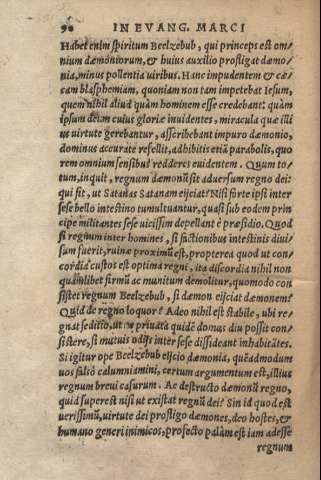 90 IN EVANG. MARCI
Habet enim spiritum Beelzebub, qui princeps est om-
nium dæmoniorum, & huius auxilio profligat dæmo-
nia, minus pollentia uiribus. Hanc impudentem & cæ-
cam blasphemiam, quoniam non tam impetebat Iesum,
quem nihil aliud quàm hominem esse credebant: quàm
ipsum deum cuius gloriæ inuidentes, miracula quæ illi
us uirtute gerebantur, asscribebant impuro dæmonio,
dominus accurate refellit, adhibitis etiā parabolis, quo
rem omnium sensibus redderet euidentem. Quum to-
tum, inquit, regnum dæmonū sit aduersum regno dei:
qui fit, ut Satanas Satanam eijciat? Nisi forte ipsi inter
sese bello intestino tumultuantur, quasi sub eodem prin-
cipe militantes sese uicissim depellant è præsidio. Quod
si regnum inter homines, si factionibus intestinis diui
sum fuerit, ruinæ proximū est, propterea quod ut con-
cordia custos est optima regni, ita discordia nihil non
quamlibet firmū ac munitum demolitur, quomodo con
sistet regnum Beelzebub, si dæmon eijciat dæmonem?
Quid de regno loquor? Adeo nihil est stabile, ubi re-
gnat seditio, ut ne priuata quidē domus diu possit con-
sistere, si mutuis odijs inter sese dissideant inhabitātes.
Si igitur ope Beelzebub eijcio dæmonia, quēadmodum
uos falsò calumniamini, certum argumentum est, illius
regnum breui casurum. Ac destructo dæmonū regno,
quid superest nisi ut existat regnū dei? Sin id quod est
uerissimū, uirtute dei profligo dæmones, deo hostes, &
humano generi inimicos, profecto palàm est iam adesse
regnum